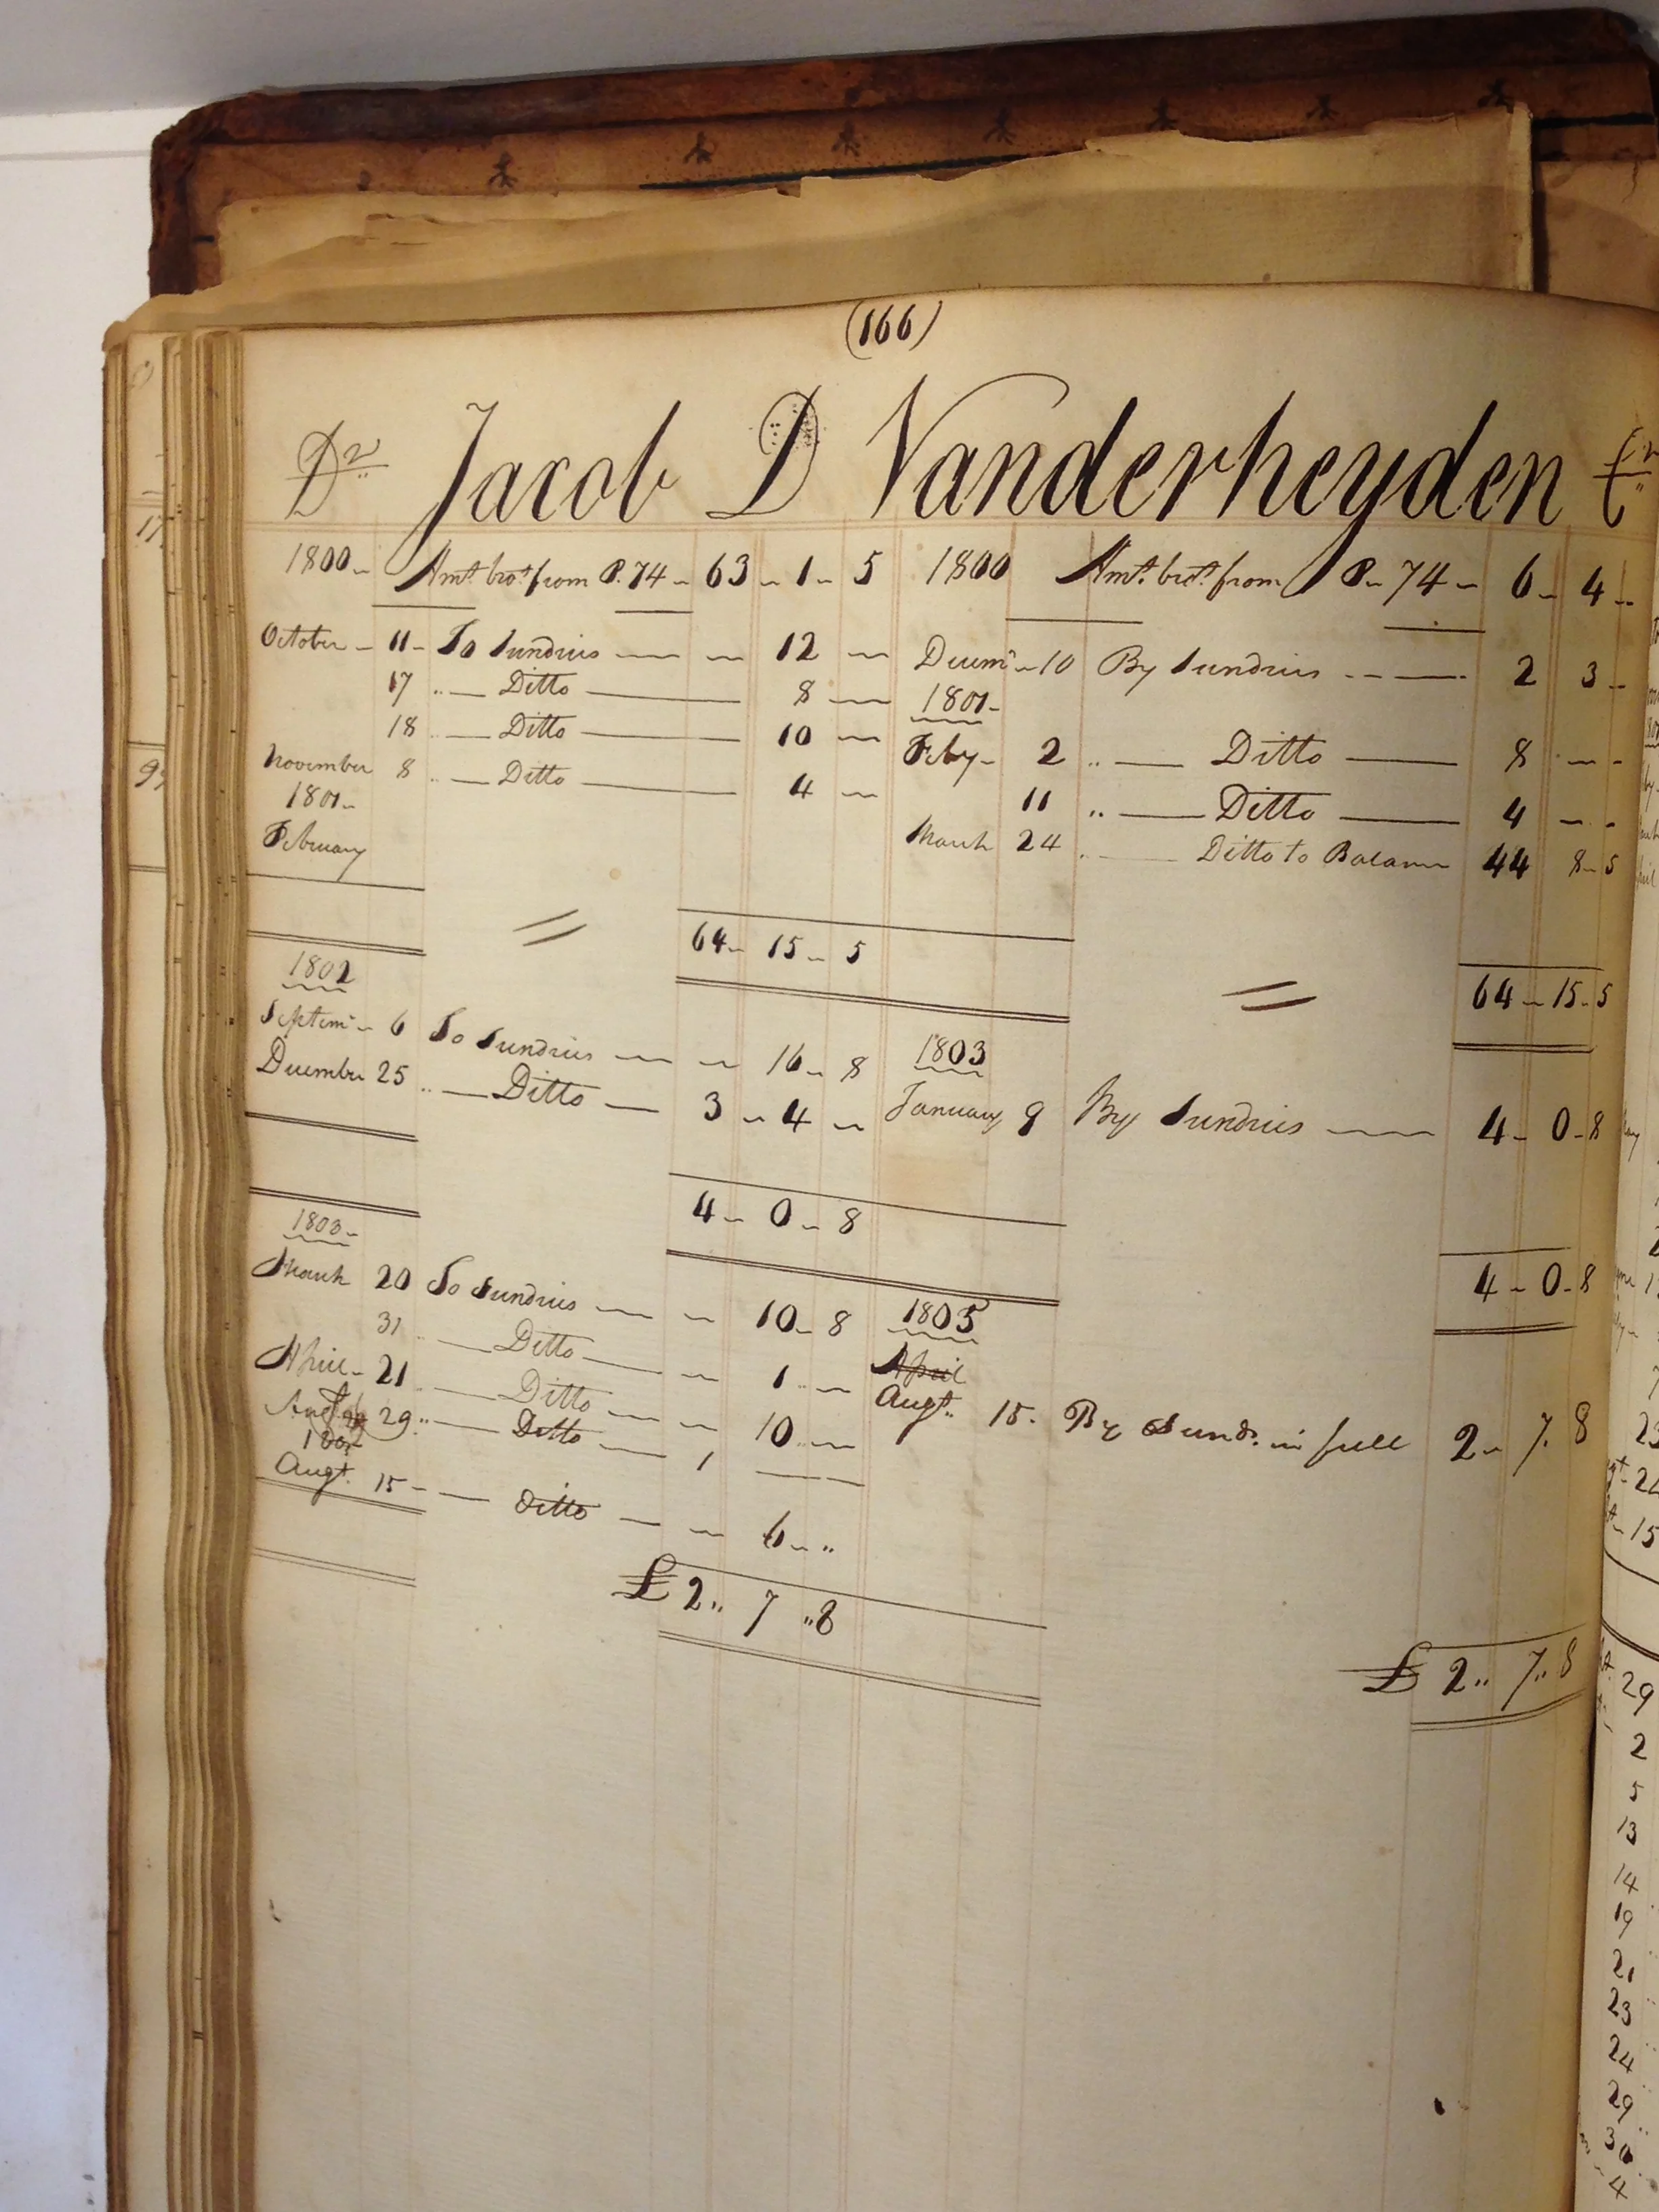 (166)
Dr Jacob D Vanderheyden Cr
1800 Amt. brot. from P. 74 63 1 5 1800 Amt. brot. from P. 74 6 4
October 11 To Sundries 12 Decemr 10 By Sundries 2 3
17 " Ditto 8 1801
18 " Ditto 10 Feby 2 " Ditto 8
November 8 " Ditto 4 11 " Ditto 4
1801
February March 24 Ditto to Balance 44 8 5
64 15 5 64 15 5
1802
Septemr 6 To Sundries 16 8 1803
December 25 " Ditto 3 4 January 9 By Sundries 4 0 8
4 0 8 4 0 8
1803
March 20 To Sundries 10 8 1805
31 Ditto 1 April
April 21 Ditto 10 Augt. 15. By Sunds. in full 2 7. 8
29 " Ditto 1
Augt. 15 Ditto 6 "
£ 2 " 7 " 8 £ 2 " 7 " 8